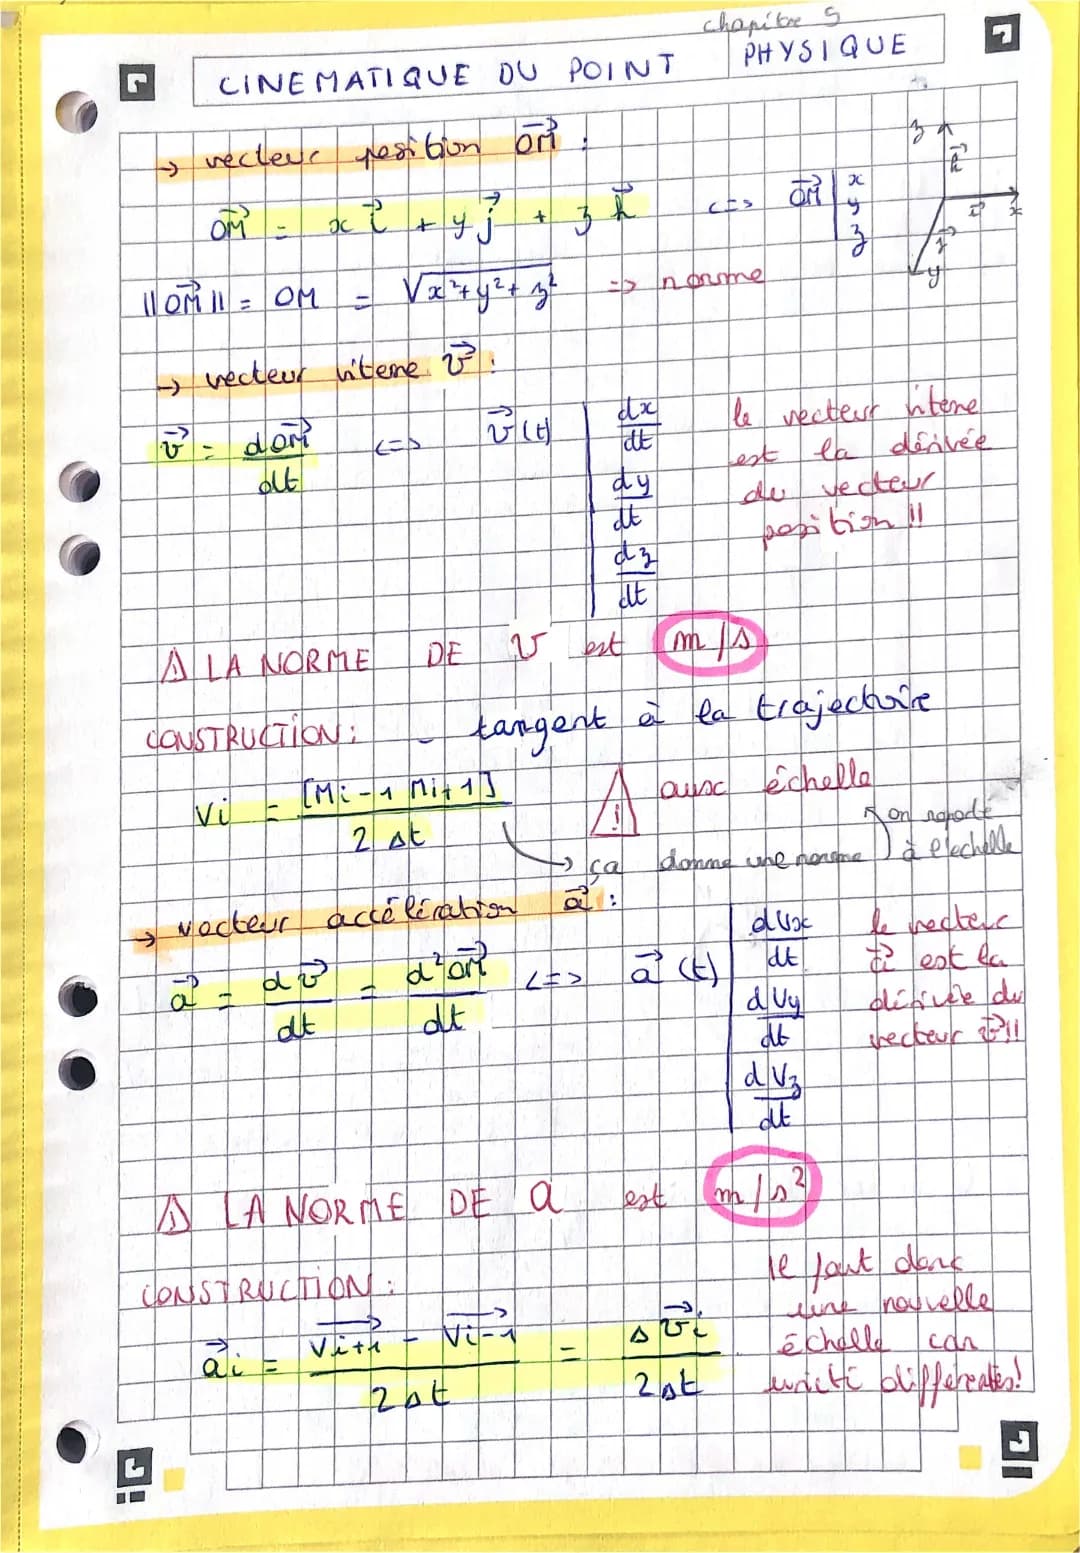 chapitre 5
CINEMATIQUE DU POINT
PHYSIQUE
→ vecteur position \vec{OM} :
\vec{OM} = x \vec{i} + y \vec{j} + z \vec{k} <=> \vec{OM} | x
y
z
z \vec{k} \vec{i} x \vec{j} y
||\vec{OM}|| = OM = √(x²+y²+z²) => norme
→ vecteur vitesse \vec{v} :
\vec{v} = d\vec{OM}/dt <=> \vec{v}(t) | dx/dt
dy/dt
dz/dt
le vecteur vitesse
est la dérivée
du vecteur
position !!
⚠ LA NORME DE v est m/s
CONSTRUCTION : - tangent à la trajectoire
Vi = [Mi-1 Mi+1] / 2 Δt
⚠ aux échelle
→ ça donne une norme
on reporte
à l'echelle
→ vecteur accélération \vec{a} :
\vec{a} = d\vec{v}/dt = d²\vec{OM}/dt <=> \vec{a}(t) | dVx/dt
dVy/dt
dVz/dt
le vecteur
\vec{a} est la
dérivée du
vecteur \vec{v} !!
⚠ LA NORME DE a est m/s²
CONSTRUCTION :
\vec{a}i = (\vec{Vi+1} - \vec{Vi-1}) / 2Δt = Δ\vec{v}i / 2Δt
le faut donc
une nouvelle
échelle car
unité différentes!